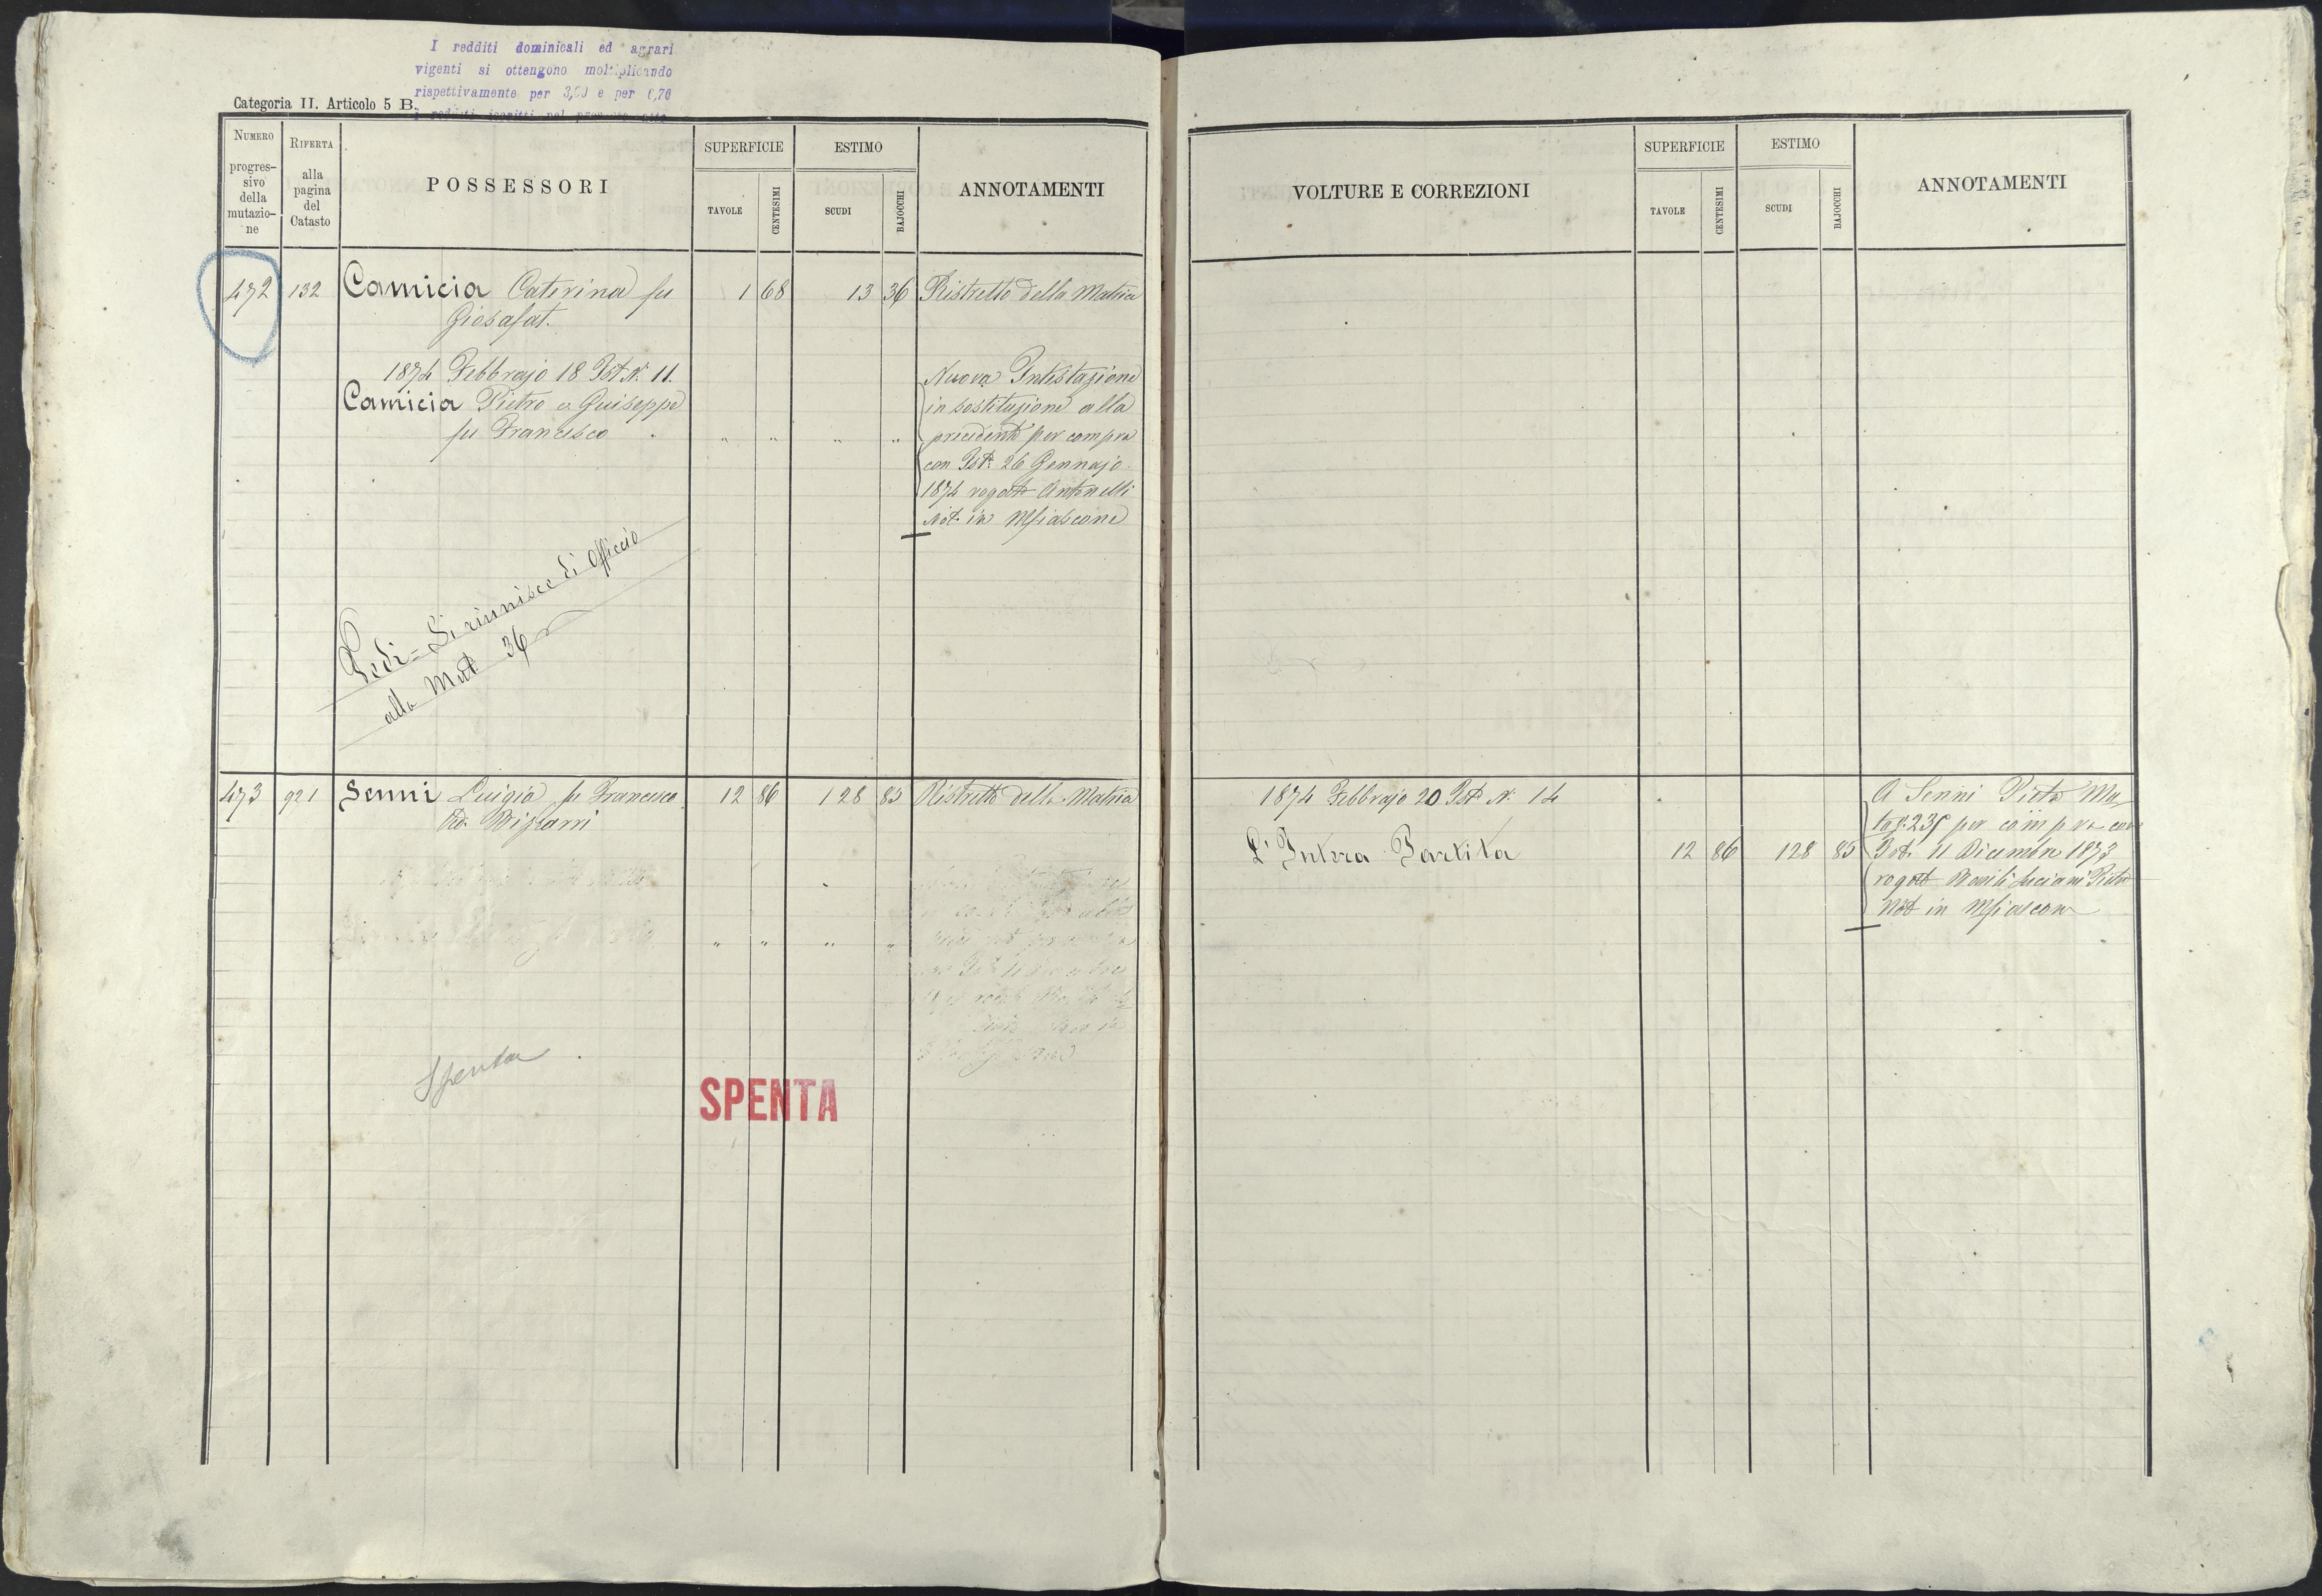 I redditi dominicali ed agrari
vigenti si ottengono moltiplicando
rispettivamente per 3,00 e per 0,70
Categoria II. Articolo 5 B.
NUMERO progressivo della mutazione
RIFERTA alla pagina del Catasto
POSSESSORI
SUPERFICIE
TAVOLE
CENTESIMI
ESTIMO
SCUDI
BAJOCCHI
ANNOTAMENTI
472 132 Camicia Caterina fu 1 68 13 36 Ristretto della Matrice
Giosafat.
1874 Febbrajo 18 Ist. N. 11.
Camicia Pietro e Guiseppe
fu Francesco . " " " "
Nuova Intestazione
in sostituzione alla
precedente per compra
con Ist. 26 Gennajo
1874 rogato Antonelli
Not. in Mfiascone
Vedi = Si riunisce di Officio
alla Mut 36
473 921 Senni Luigia fu Francesco 12 86 128 85 Ristretto della Matrice
Ved. Bizzarri
" " " "
Spenta
SPENTA
VOLTURE E CORREZIONI
SUPERFICIE
TAVOLE
CENTESIMI
ESTIMO
SCUDI
BAJOCCHI
ANNOTAMENTI
1874 Febbrajo 20 Ist. N. 14
L'Intera Partita 12 86 128 85
A Senni Pietro Mu-
per compra con
Ist. 11 Dicembre 1873
rogato Luciani Pietro
Not in Mfiascone